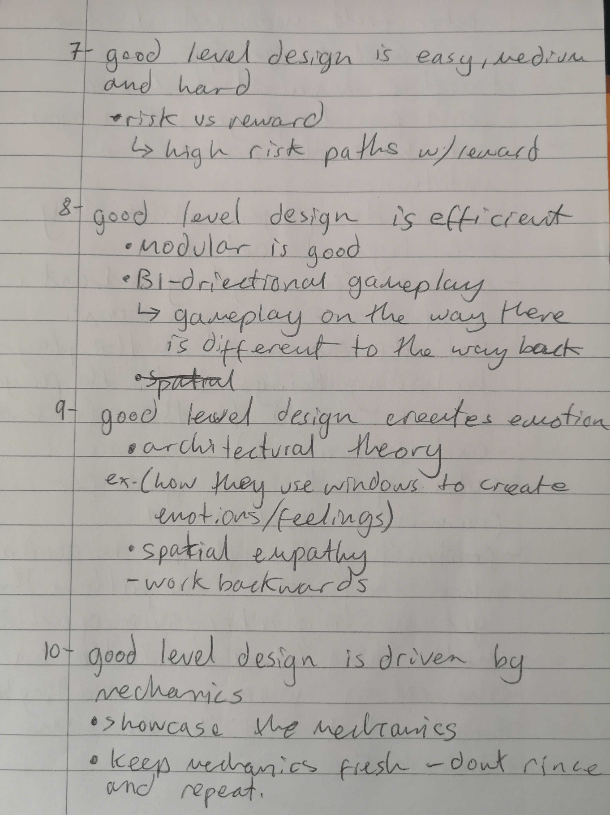 7- good level design is easy, medium
and hard
•risk vs reward
↳ high risk paths w/reward
8- good level design is efficient
•modular is good
•BI-driectional gameplay
↳ gameplay on the way there
is different to the way back
•spatial
9- good level design creates emotion
•architectural theory
ex-(how they use windows to create
emotions/feelings)
•spatial empathy
-work backwards
10- good level design is driven by
mechanics
•showcase the mechanics
•keep mechanics fresh -dont rince
and repeat.